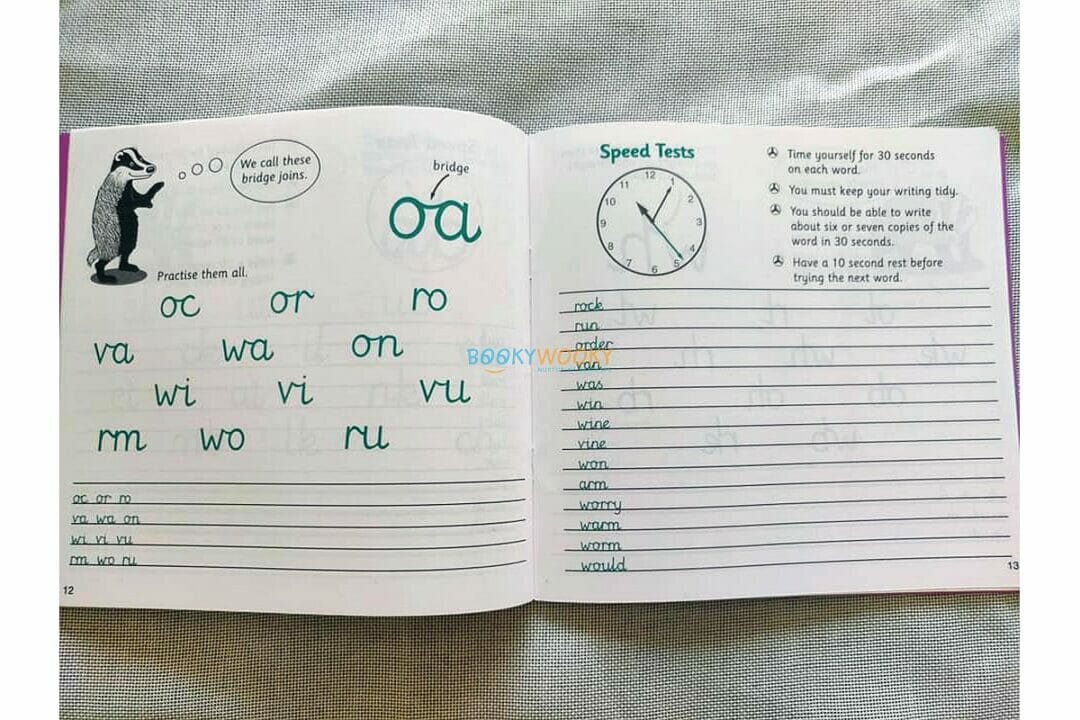 We call these
bridge joins.
bridge
oa
Practise them all.
oc or ro
va wa on
wi vi vu
rm wo ru
oc or ro
va wa on
wi vi vu
rm wo ru
12
Speed Tests
12
11 1
10 2
9 3
8 4
7 5
6
Time yourself for 30 seconds
on each word.
You must keep your writing tidy.
You should be able to write
about six or seven copies of the
word in 30 seconds.
Have a 10 second rest before
trying the next word.
rock
run
order
van
was
win
wine
vine
won
arm
worry
warm
worm
would
13
BOOKYWOOKY